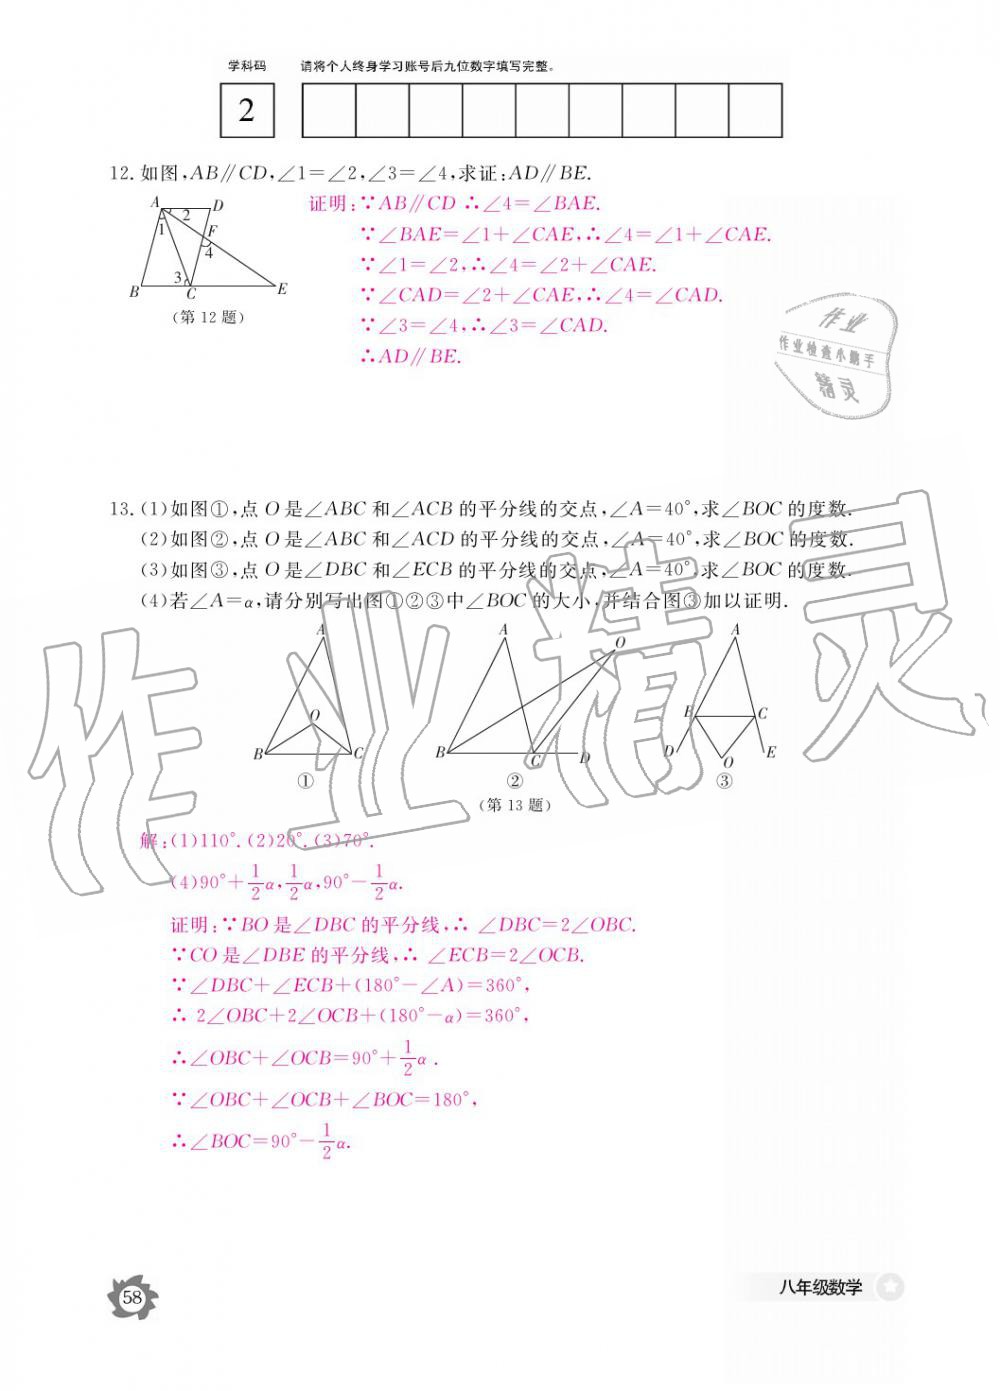 学科码 请将个人终身学习账号后九位数字填写完整。
2
12.如图,AB∥CD,∠1=∠2,∠3=∠4,求证:AD∥BE.
A D
2
1 F
4
3
B C E
(第12题)
证明:∵AB∥CD ∴∠4=∠BAE.
∵∠BAE=∠1+∠CAE,∴∠4=∠1+∠CAE.
∵∠1=∠2,∴∠4=∠2+∠CAE.
∵∠CAD=∠2+∠CAE,∴∠4=∠CAD.
∵∠3=∠4,∴∠3=∠CAD.
∴AD∥BE.
作业
作业检查小助手
精灵
13.(1)如图①,点O是∠ABC和∠ACB的平分线的交点,∠A=40°,求∠BOC的度数.
(2)如图②,点O是∠ABC和∠ACD的平分线的交点,∠A=40°,求∠BOC的度数.
(3)如图③,点O是∠DBC和∠ECB的平分线的交点,∠A=40°,求∠BOC的度数.
(4)若∠A=α,请分别写出图①②③中∠BOC的大小,并结合图③加以证明.
A A O A
O B C
B C B C D D O E
① ② ③
(第13题)
作业精灵
解:(1)110°.(2)20°.(3)70°.
(4)90°+1/2α,1/2α,90°-1/2α.
证明:∵BO是∠DBC的平分线,∴ ∠DBC=2∠OBC.
∵CO是∠DBE的平分线,∴ ∠ECB=2∠OCB.
∵∠DBC+∠ECB+(180°-∠A)=360°,
∴ 2∠OBC+2∠OCB+(180°-α)=360°,
∴∠OBC+∠OCB=90°+1/2α.
∵∠OBC+∠OCB+∠BOC=180°,
∴∠BOC=90°-1/2α.
58
八年级数学